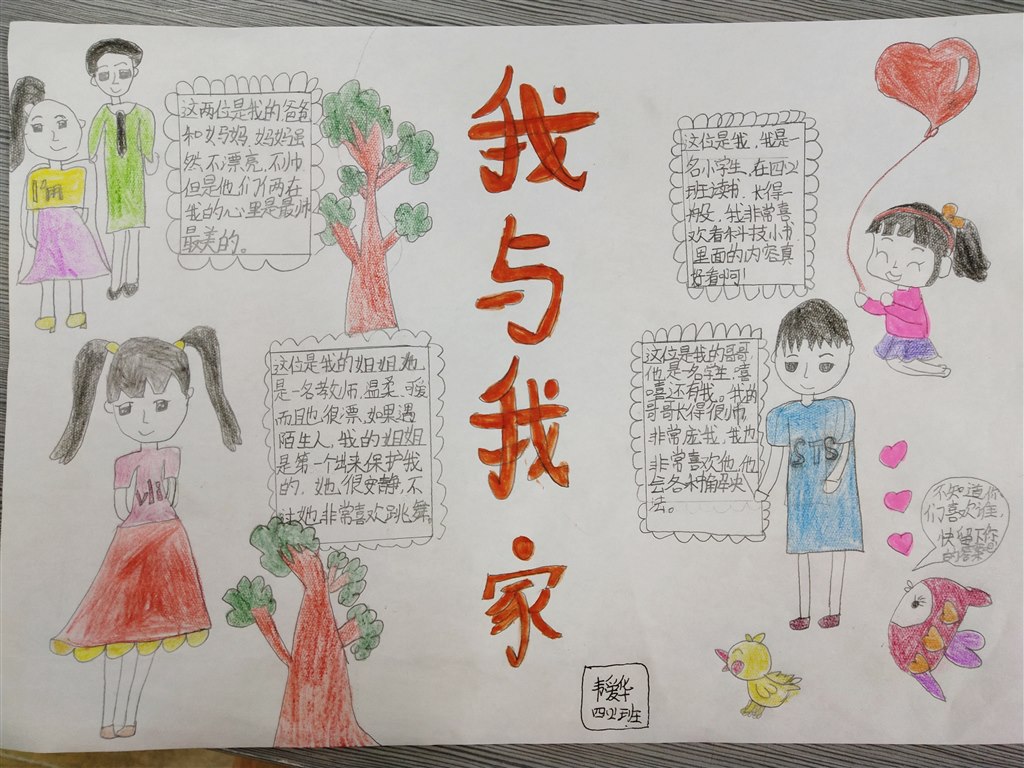 我与我家
这两位是我的爸爸
和妈妈,妈妈虽
然不漂亮,不帅
但是他们俩在
我的心里是最帅
最美的。
这位是我的姐姐,她
是一名教师,温柔、可爱
而且也很漂,如果遇
陌生人,我的姐姐
是第一个出来保护我
的,她很安静,不
过她非常喜欢跳舞。
这位是我,我是一
名小学生,在四(2)
班读书,长得一
般般,我非常喜
欢看科技小书
里面的内容真
好看啊!
这位是我的哥哥
他是一名学生,嘻
嘻还有我。我的
哥哥长得很帅,
非常疼我,我也
非常喜欢他,他
会各种解决
法。
STS
不知道你
们喜欢谁,
快留下你
的答案吧
韦爱华
四(2)班